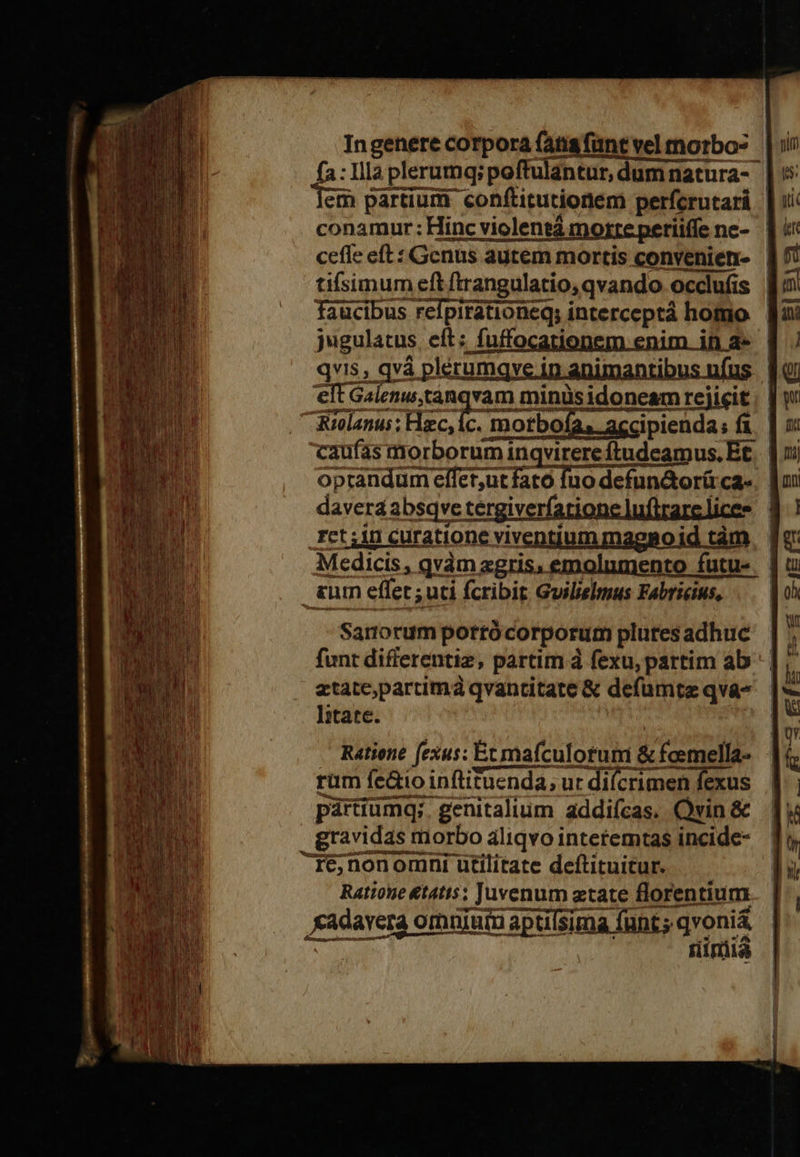 In genere corpora ſana ſunt vel morbo-
ſa: Illa plerumq; poſtulantur, dum natura-
lem partium conſtitutionem perſcrutari
conamur: Hinc violentâ morte periiſſe ne-
ceſſe eſt: Genus autem mortis convenien-
tiſsimum eſt ſtrangulatio, qvando occluſis
faucibus reſpirationeq; interceptâ homo
jugulatus eſt: ſuffocationem enim in a-
qvis, qvâ plerumqve in animantibus uſus
eſt Galenus, tanqvam minùs idoneam rejicit
Riolanus: Hæc, ſc. morboſa, accipienda; ſi
cauſas morborum inqvirere ſtudeamus. Et
optandum eſſet, ut fato ſuo defunctorū ca-
davera absqve tergiverſatione luſtrare lice-
ret; in curatione viventium magno id tàm
Medicis, qvàm ægris, emolumento futu-
rum eſſet; uti ſcribit Guilielmus Fabricius,
Sanorum porrò corporum plures adhuc
ſunt differentiæ, partim à ſexu, partim ab
ætate, partim à qvantitate & deſumtæ qva-
litate.
Ratione ſexus: Et maſculorum & fœmella-
rum ſectio inſtituenda, ut diſcrimen ſexus
partiumq; genitalium addiſcas. Qvin &
gravidas morbo aliqvo interemtas incide-
re, non omni utilitate deſtituitur.
Ratione ætatis: Juvenum ætate florentium
cadavera omnium aptiſsima ſunt; qvoniã
nimiâ